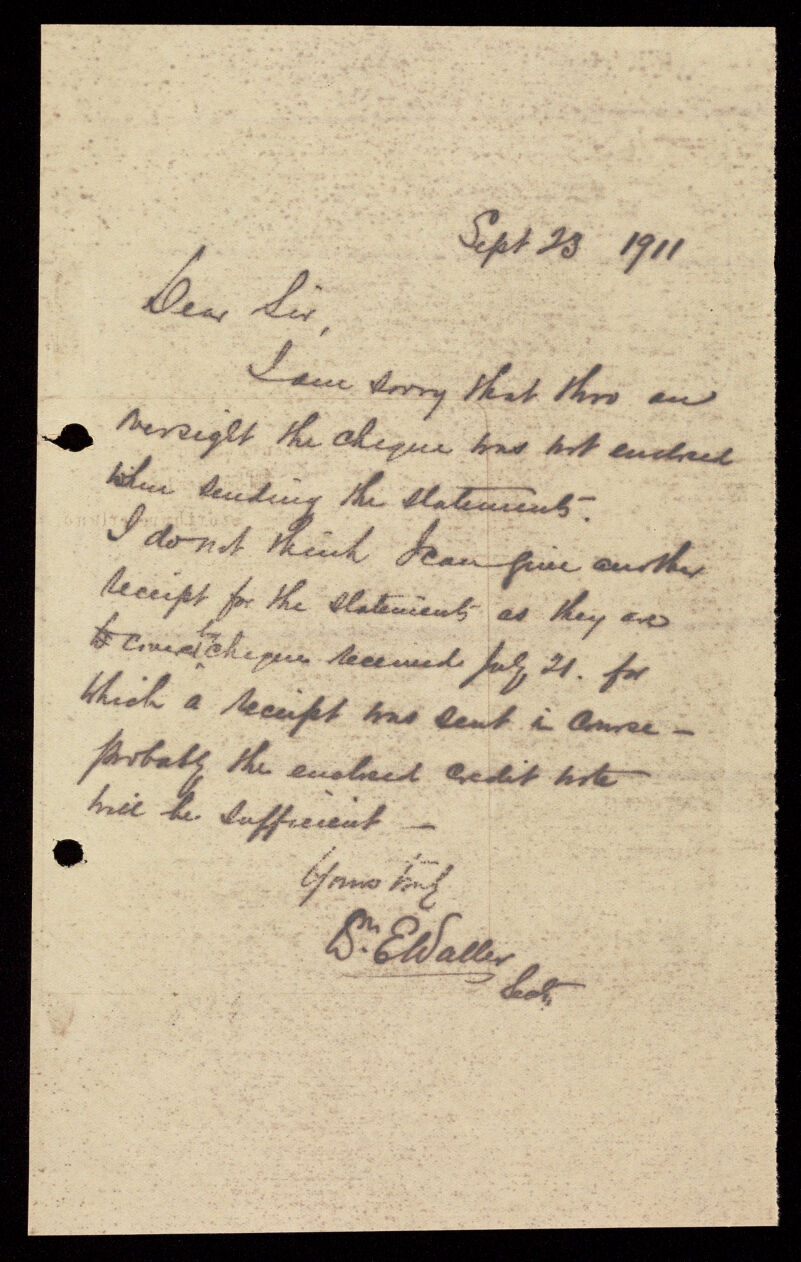 Sept 23 1911
Dear Sir,
I am sorry that thro an
oversight the cheque was not enclosed
when sending the statements.
I do not think I can give another
receipt for the statements as they are
to cover cheque received July 21. for
which a receipt was sent in course –
probably the enclosed credit note
will be sufficient –
Yours truly
Wm. E Waller
Secty